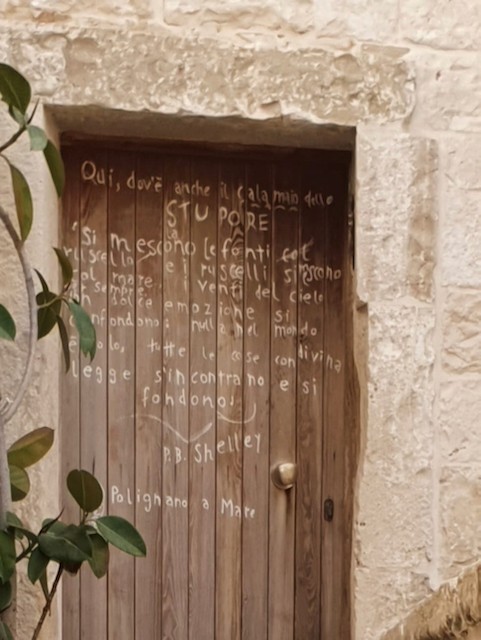 Qui, dov'è anche il Calamaio dello
STUPORE
"Si mescono le fonti col
ruscello e i ruscelli si mescono
col mare i venti del cielo
per sempre
in dolce emozione si
confondono; nulla nel mondo
è solo, tutte le cose con divina
legge s'incontrano e si
fondono"
P.B. Shelley
Polignano a Mare